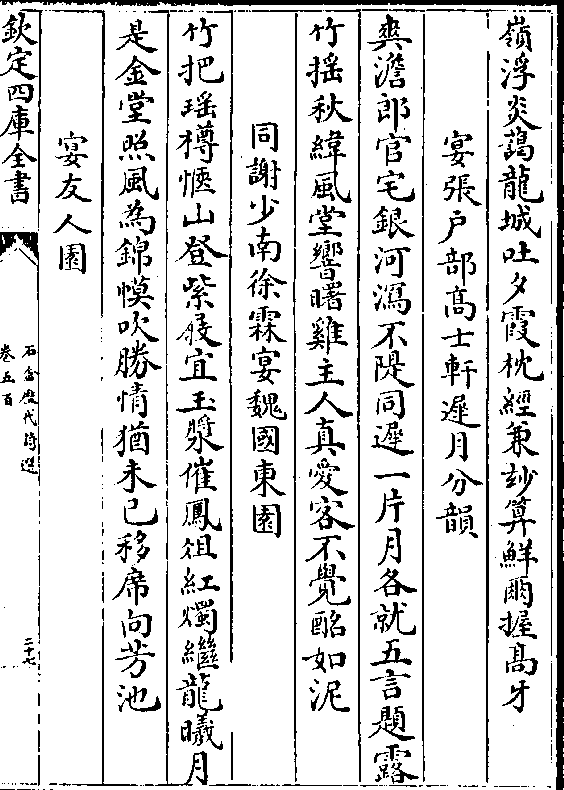 嶺浮炎藹龍城吐夕霞枕經兼妙算鮮爾握髙牙
宴張戸部髙士軒遲月分韻
爽澹郎官宅銀河瀉不隄同遲一片月各就五言題露
竹揺秋緯風堂響曙雞主人真愛客不覺酩如泥
同謝少南徐霖宴魏國東園
竹把瑶樽愜山登紫殷宜玉漿催鳳俎紅燭繼龍曦月
是金堂照風為錦幙吹勝情猶未已移席向芳池
宴友人園
欽定四庫全書
石倉歴代詩選
卷五百
二十七